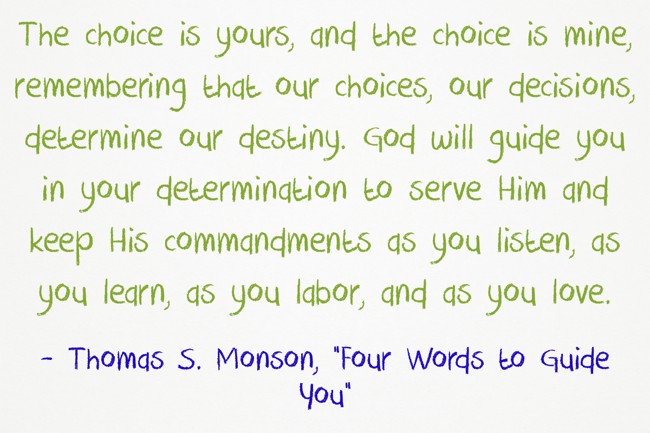 The choice is yours, and the choice is mine,
remembering that our choices, our decisions,
determine our destiny. God will guide you
in your determination to serve Him and
keep His commandments as you listen, as
you learn, as you labor, and as you love.
- Thomas S. Monson, "Four Words to Guide
You"